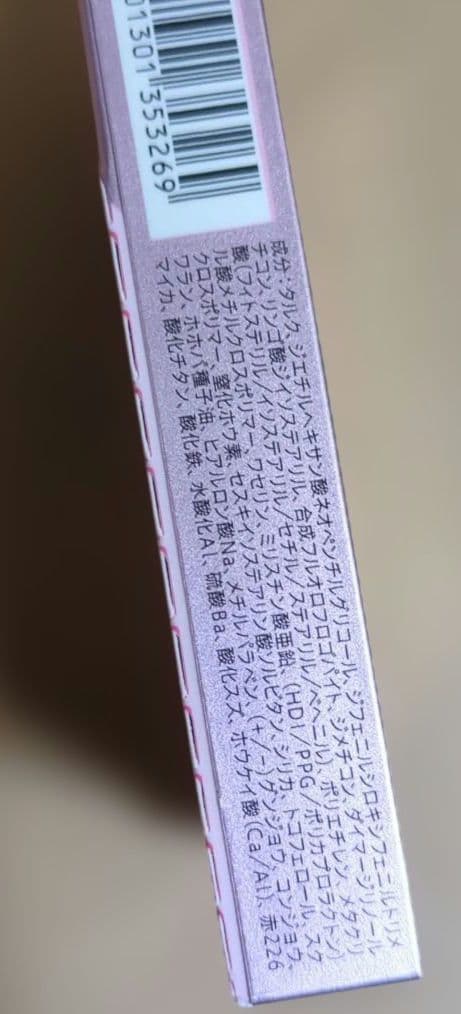 01301 353269
成分:タルク、ジエチルヘキサン酸ネオペンチルグリコール、ジフェニルシロキシフェニルトリメ
チコン、リンゴ酸ジイソステアリル、合成フルオロフロゴパイト、ジメチコン、ダイマージリノール
酸(フィトステリル/イソステアリル/セチル/ステアリル/ベヘニル)、ポリエチレン、メタクリ
ル酸メチルクロスポリマー、ワセリン、ミリスチン酸亜鉛、(HDI/PPG/ポリカプロラクトン)
クロスポリマー、窒化ホウ素、セスキイソステアリン酸ソルビタン、シリカ、トコフェロール、スク
ワラン、ホホバ種子油、ヒアルロン酸Na、メチルパラベン、(+/-)グンジョウ、コンジョウ、
マイカ、酸化チタン、酸化鉄、水酸化Al、硫酸Ba、酸化スズ、ホウケイ酸(Ca/Al)、赤226